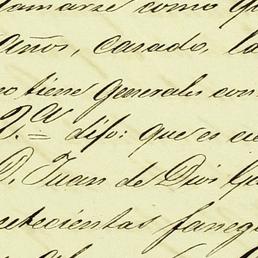 llamarse como q
años, casado, la
no tiene generales con
2.ª = dijo: que es cie
D. Juan de Dios Gu
setecientas faneg